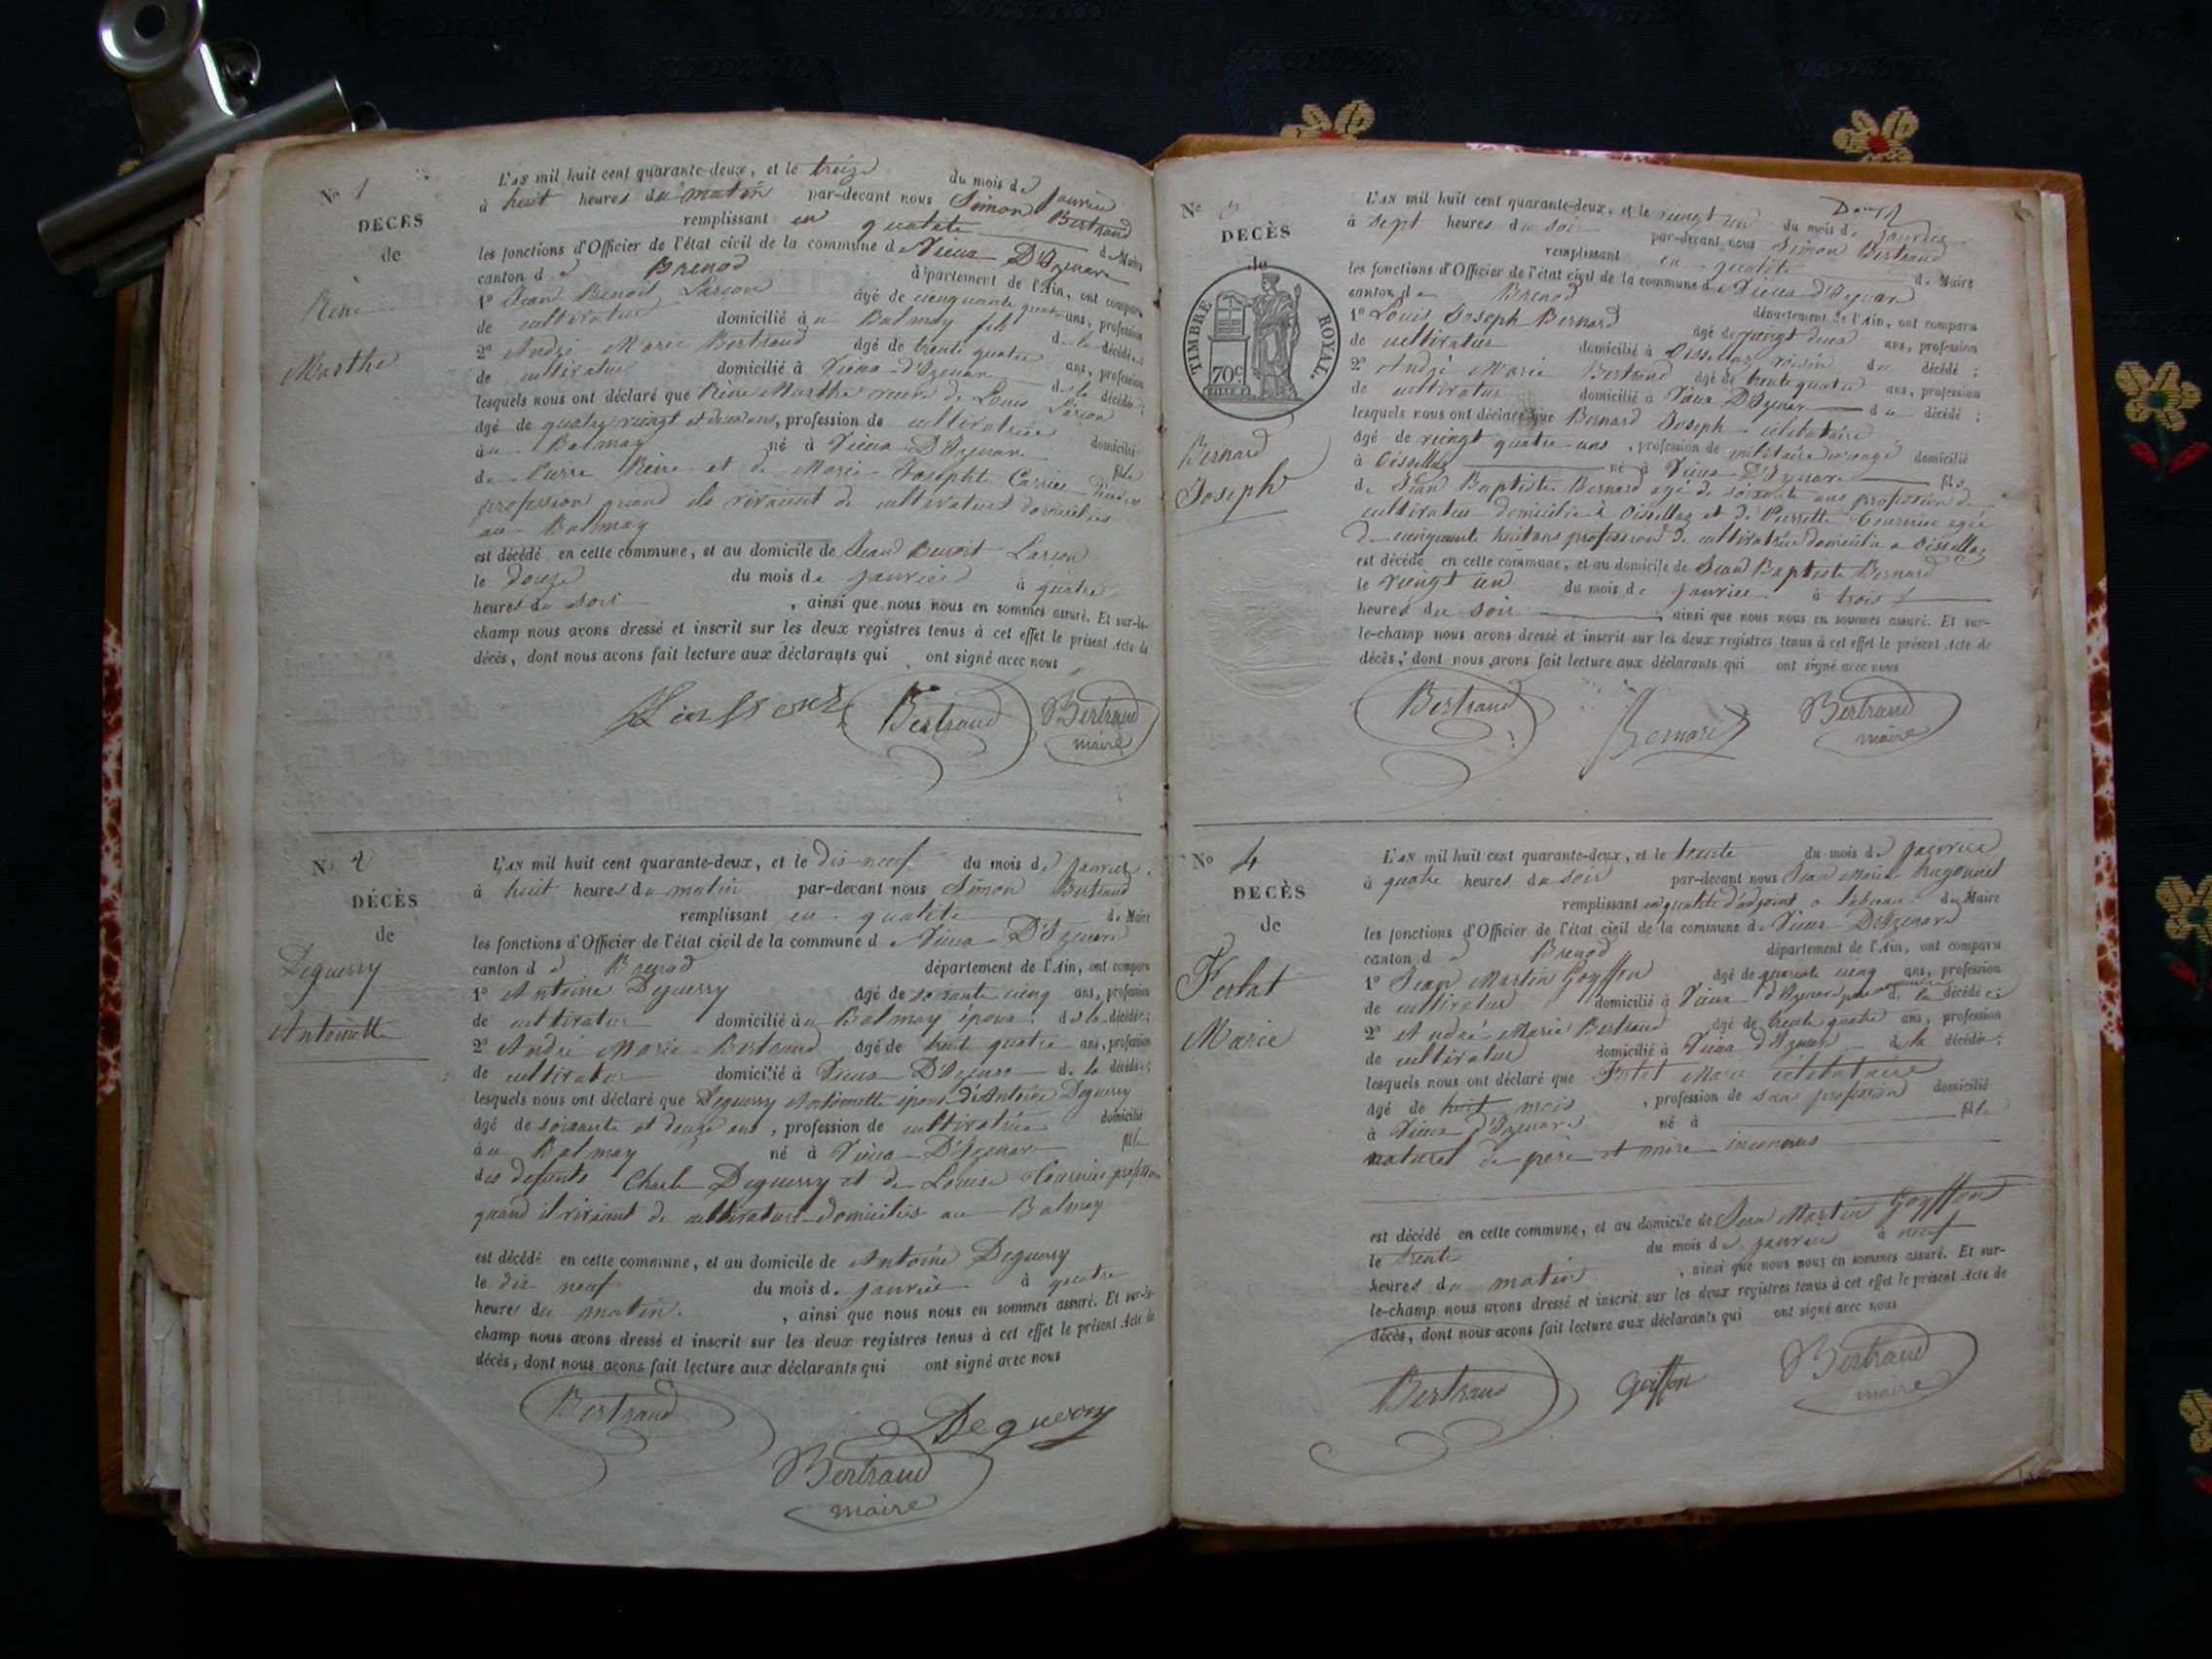 N° 1
DECÈS
de
Rène
Marthe
L'AN mil huit cent quarante-deux, et le treize du mois de janvier
à huit heures du matin par-devant nous Simon Bertrand
remplissant en qualité de Maire
les fonctions d'Officier de l'état civil de la commune de Vieux D'Izenave
canton de Brenod département de l'Ain, ont comparu
1° Jean Benoit Larçon âgé de cinquante ans, profession
de cultivateur domicilié à u Balmay fils de la décédée
2° André Marie Bertrand âgé de trente quatre ans, profession
de cultivateur domicilié à Vieux-d'Izenave de la décédée;
lesquels nous ont déclaré que Rène Marthe veuve de Louis Larçon
âgé de quatre vingt et deux ans, profession de cultivatrice domicilié
au Balmay né à Vieux D'Izenave fille
de Pierre Rène et de Marie Josephte Carrier
profession quand ils vivaient de cultivateurs domiciliés
au Balmay
est décédé en cette commune, et au domicile de Jean Benoit Larçon
le douze du mois de janvier à quatre
heures du soir , ainsi que nous nous en sommes assuré. Et sur-le-
champ nous avons dressé et inscrit sur les deux registres tenus à cet effet le présent Acte de
décès, dont nous avons fait lecture aux déclarants qui ont signé avec nous
Bertrand Bertrand
maire
N° 2
DÉCÈS
de
Deguerry
Antoinette
L'AN mil huit cent quarante-deux, et le dix-neuf du mois de janvier
à huit heures du matin par-devant nous Simon Bertrand
remplissant en qualité de Maire
les fonctions d'Officier de l'état civil de la commune de Vieux D'Izenave
canton de Brenod département de l'Ain, ont comparu
1° Antoine Deguerry âgé de soixante cinq ans, profession
de cultivateur domicilié à u Balmay époux de la décédée;
2° André Marie Bertrand âgé de trente quatre ans, profession
de cultivateur domicilié à Vieux D'Izenave de la décédée;
lesquels nous ont déclaré que Deguerry Antoinette épouse d'Antoine Deguerry
âgé de soixante et douze ans, profession de cultivatrice domicilié
au Balmay né à Vieux D'Izenave fille
des defunts Charle Deguerry et de Louise Tournier profession
quand il vivaient de cultivateurs domiciliés au Balmay
est décédé en cette commune, et au domicile de Antoine Deguerry
le dix neuf du mois de janvier à quatre
heures du matin. , ainsi que nous nous en sommes assuré. Et sur-le-
champ nous avons dressé et inscrit sur les deux registres tenus à cet effet le présent Acte de
décès, dont nous avons fait lecture aux déclarants qui ont signé avec nous
Bertrand Deguerry
Bertrand
maire
N° 3
DECÈS
de
TIMBRE ROYAL.
70c
Bernard
Joseph
L'AN mil huit cent quarante-deux, et le vingt un du mois de janvier
à sept heures du soir par-devant nous Simon Bertrand
remplissant en qualité de Maire
les fonctions d'Officier de l'état civil de la commune de Vieux d'Izenave
canton de Brenod département de l'Ain, ont comparu
1° Louis Joseph Bernard âgé de vingt deux ans, profession
de cultivateur domicilié à Oisselaz voisin du décédé;
2° André Marie Bertrand âgé de trente quatre ans, profession
de cultivateur domicilié à Vieux D'Izenave du décédé;
lesquels nous ont déclaré que Bernard Joseph célibataire
âgé de vingt quatre ans, profession de militaire en congé domicilié
à Oisselaz né à Vieux D'Izenave fils
de Jean Baptiste Bernard agé de soixante ans profession de
cultivateur domicilié à Oisselaz et de Pierrette Tournier agée
de cinquante huit ans profession de cultivatrice domicilié a Oisselaz
est décédé en cette commune, et au domicile de Jean Baptiste Bernard
le vingt un du mois de janvier à trois
heures du soir , ainsi que nous nous en sommes assuré. Et sur-
le-champ nous avons dressé et inscrit sur les deux registres tenus à cet effet le présent Acte de
décès, dont nous avons fait lecture aux déclarants qui ont signé avec nous
Bertrand Bernard Bertrand
maire
N° 4
DECÈS
de
Ferlat
Marie
L'AN mil huit cent quarante-deux, et le trente du mois de janvier
à quatre heures du soir par-devant nous Jean Marie Hugonnet
remplissant en qualité d'adjoint de Maire
les fonctions d'Officier de l'état civil de la commune de Vieux D'Izenave
canton de Brenod département de l'Ain, ont comparu
1° Jean Martin Goyffon âgé de quarante cinq ans, profession
de cultivateur domicilié à Vieux d'Izenave de la décédée
2° André Marie Bertrand âgé de trente quatre ans, profession
de cultivateur domicilié à Vieux d'Izenave de la décédée;
lesquels nous ont déclaré que Ferlat Marie célibataire
âgé de huit mois , profession de sans profession domicilié
à Vieux d'Izenave né à fille
naturel de père et mère inconnus
est décédé en cette commune, et au domicile de Jean Martin Goyffon
le trente du mois de janvier à neuf
heures du matin , ainsi que nous nous en sommes assuré. Et sur-
le-champ nous avons dressé et inscrit sur les deux registres tenus à cet effet le présent Acte de
décès, dont nous avons fait lecture aux déclarants qui ont signé avec nous
Bertrand Goiffon Bertrand
maire